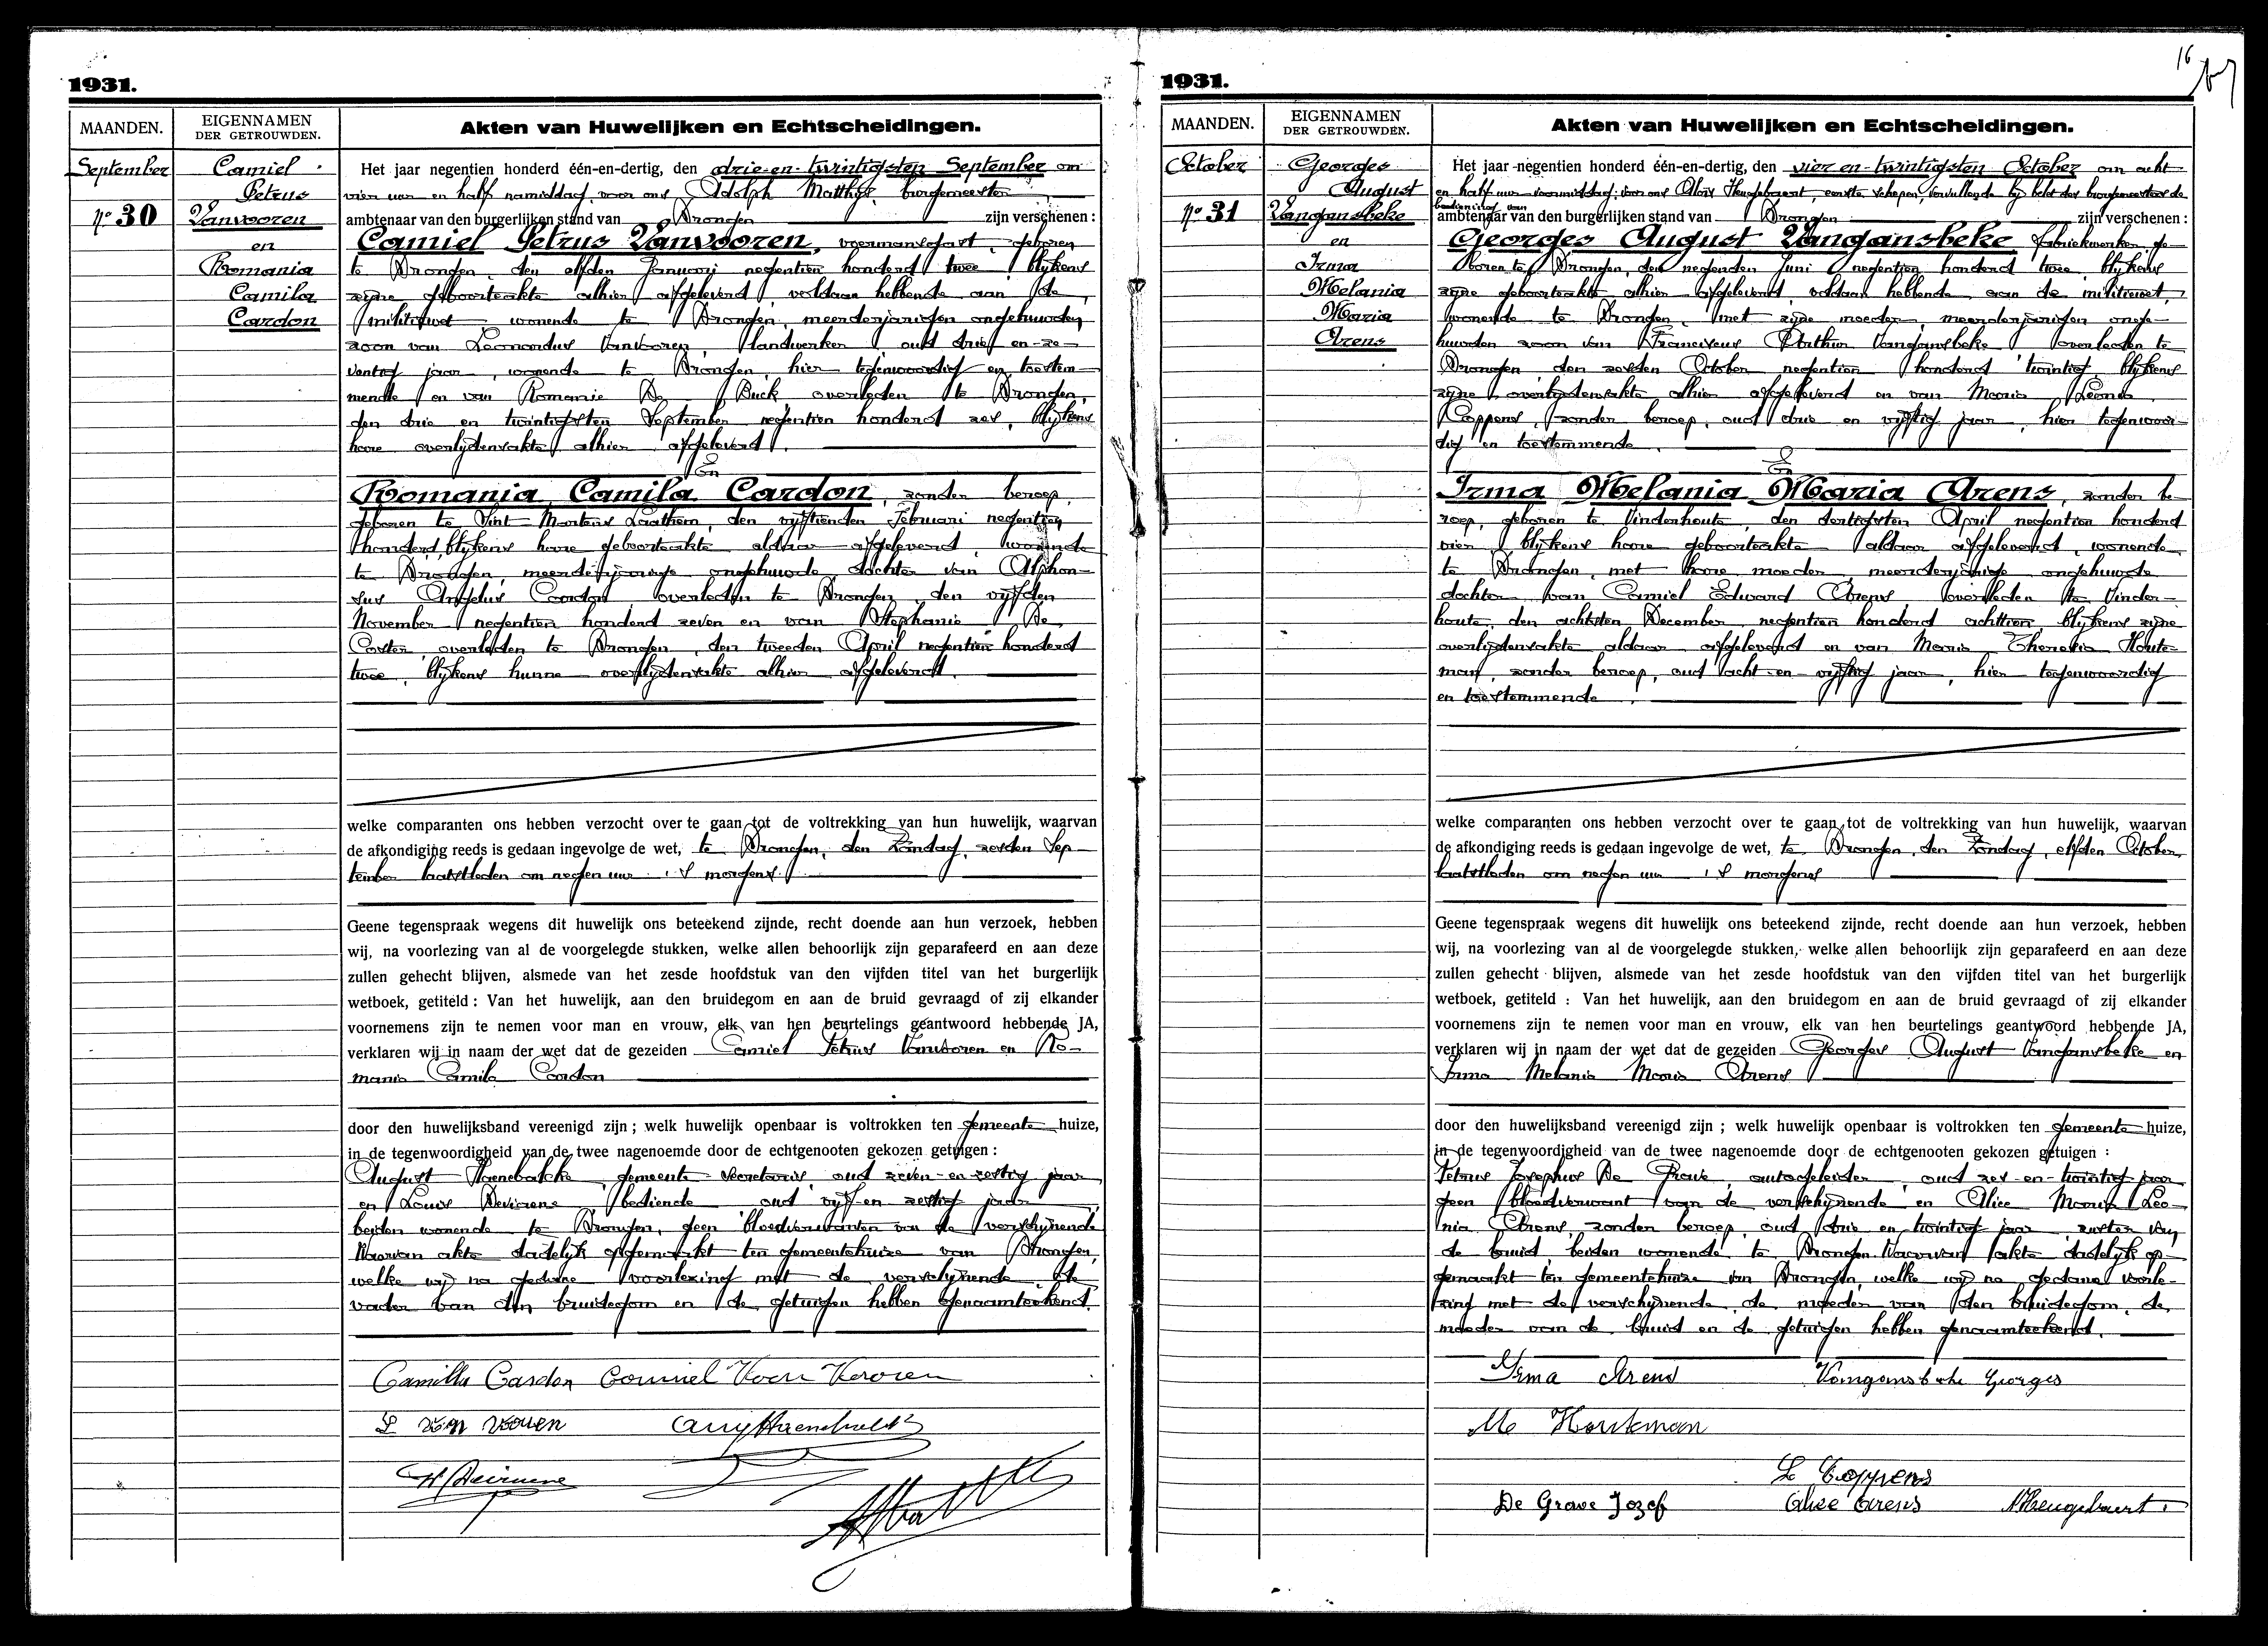 1931.
MAANDEN.
EIGENNAMEN
DER GETROUWDEN.
Akten van Huwelijken en Echtscheidingen.
September
Nº 30
Camiel
Petrus
Vanvooren
en
Romania
Camila
Cardon
Het jaar negentien honderd één-en-dertig, den drie-en-twintigsten September om
vier uur en half namiddag, voor ons Adolph Matthijs, burgemeester
ambtenaar van den burgerlijken stand van Drongen zijn verschenen :
Camiel Petrus Vanvooren, voermansgast, geboren
te Drongen, den elfden Januarij negentien honderd twee, blijkens
zijne geboorteakte alhier afgeleverd, voldaan hebbende aan de
militiewet, wonende te Drongen, meerderjarigen ongehuwden
zoon van Leonardus Vanvooren, landwerker, oud drie-en-ze-
ventig jaar, wonende te Drongen, hier tegenwoordig en toestem-
mende en van Romanie De Buck, overleden te Drongen,
den drie en twintigsten September negentien honderd zes, blijkens
hare overlijdensakte alhier afgeleverd.
En
Romania Camila Cardon, zonder beroep,
geboren te Sint Martens Laathem, den vijftienden Februari negentien
honderd, blijkens hare geboorteakte aldaar afgeleverd, wonende
te Drongen, meerderjarige ongehuwde dochter van Alphon-
sus Angelus Cardon, overleden te Drongen, den vijfden
November negentien honderd zeven en van Stephanie De
Coster, overleden te Drongen, den tweeden April negentien honderd
twee, blijkens hunne overlijdensakte alhier afgeleverd.
welke comparanten ons hebben verzocht over te gaan tot de voltrekking van hun huwelijk, waarvan
de afkondiging reeds is gedaan ingevolge de wet, te Drongen, den Zondag, zesden Sep-
tember laatstleden om negen uur 's morgens.
Geene tegenspraak wegens dit huwelijk ons beteekend zijnde, recht doende aan hun verzoek, hebben
wij, na voorlezing van al de voorgelegde stukken, welke allen behoorlijk zijn geparafeerd en aan deze
zullen gehecht blijven, alsmede van het zesde hoofdstuk van den vijfden titel van het burgerlijk
wetboek, getiteld : Van het huwelijk, aan den bruidegom en aan de bruid gevraagd of zij elkander
voornemens zijn te nemen voor man en vrouw, elk van hen beurtelings geantwoord hebbende JA,
verklaren wij in naam der wet dat de gezeiden Camiel Petrus Vanvooren en Ro-
mania Camila Cardon
door den huwelijksband vereenigd zijn ; welk huwelijk openbaar is voltrokken ten gemeente huize,
in de tegenwoordigheid van de twee nagenoemde door de echtgenooten gekozen getuigen :
August Haenebalcke, gemeente secretaris oud zeven-en-zestig jaar
en Louis Deviaene bediende oud vijf-en zestig jaar
beiden wonende te Drongen, geen bloedverwanten van de verschijnende
Waarvan akte dadelijk opgemaakt ten gemeentehuize van Drongen,
welke wij na gedane voorlezing met de verschijnende, de
vader van den bruidegom en de getuigen hebben genaamteekend.
Camilla Cardon Camiel Van Vooren
L Van Vooren
1931.
16
MAANDEN.
EIGENNAMEN
DER GETROUWDEN.
Akten van Huwelijken en Echtscheidingen.
October
Nº 31
Georges
August
Vangansbeke
en
Irma
Melania
Maria
Arens
Het jaar negentien honderd één-en-dertig, den vier en-twintigsten October om acht
en half uur voormiddag, voor ons Aloïs Heugebaert, eerste schepen, vervullende bij belet des burgemeesters de
bediening van
ambtenaar van den burgerlijken stand van Drongen zijn verschenen :
Georges August Vangansbeke, fabriekwerker, ge-
boren te Drongen, den negenden Juni negentien honderd twee, blijkens
zijne geboorteakte alhier afgeleverd, voldaan hebbende aan de militiewet,
wonende te Drongen, met zijne moeder, meerderjarigen onge-
huwden zoon van Franciscus Arthur Vangansbeke, overleden te
Drongen, den zesden October negentien honderd twintig, blijkens
zijne overlijdensakte alhier afgeleverd en van Maria Leonia
Coppens, zonder beroep, oud drie en vijftig jaar, hier tegenwoor-
dig en toestemmende.
En
Irma Melania Maria Arens, zonder be-
roep, geboren te Vinderhoute, den dertigsten April negentien honderd
vier, blijkens hare geboorteakte aldaar afgeleverd, wonende
te Drongen, met hare moeder, meerderjarige ongehuwde
dochter van Camiel Edward Arens, overleden te Vinder-
houte, den achtsten December negentien honderd achttien, blijkens zijne
overlijdensakte aldaar afgeleverd en van Maria Theresia Houte-
man, zonder beroep, oud acht-en-vijftig jaar, hier tegenwoordig
en toestemmende.
welke comparanten ons hebben verzocht over te gaan tot de voltrekking van hun huwelijk, waarvan
de afkondiging reeds is gedaan ingevolge de wet, te Drongen, den Zondag, elfden October
laatstleden om negen uur 's morgens
Geene tegenspraak wegens dit huwelijk ons beteekend zijnde, recht doende aan hun verzoek, hebben
wij, na voorlezing van al de voorgelegde stukken, welke allen behoorlijk zijn geparafeerd en aan deze
zullen gehecht blijven, alsmede van het zesde hoofdstuk van den vijfden titel van het burgerlijk
wetboek, getiteld : Van het huwelijk, aan den bruidegom en aan de bruid gevraagd of zij elkander
voornemens zijn te nemen voor man en vrouw, elk van hen beurtelings geantwoord hebbende JA,
verklaren wij in naam der wet dat de gezeiden Georges August Vangansbeke en
Irma Melania Maria Arens
door den huwelijksband vereenigd zijn ; welk huwelijk openbaar is voltrokken ten gemeente huize,
in de tegenwoordigheid van de twee nagenoemde door de echtgenooten gekozen getuigen :
Petrus Josephus De Grave, autogeleider, oud zes-en-twintig jaar
geen bloedverwant van de verschijnende en Alice Maria Leo-
nia Arens, zonder beroep, oud drie en twintig jaar, zuster van
de bruid, beiden wonende te Drongen. Waarvan akte dadelijk op-
gemaakt ten gemeentehuize van Drongen, welke wij na gedane voorle-
zing met de verschijnende, de moeder van den bruidegom, de
moeder van de bruid en de getuigen hebben genaamteekend.
Irma Arens Vangansbeke Georges
M Houteman
L Coppens
De Grave Jozef Alice Arens AHeugebaert